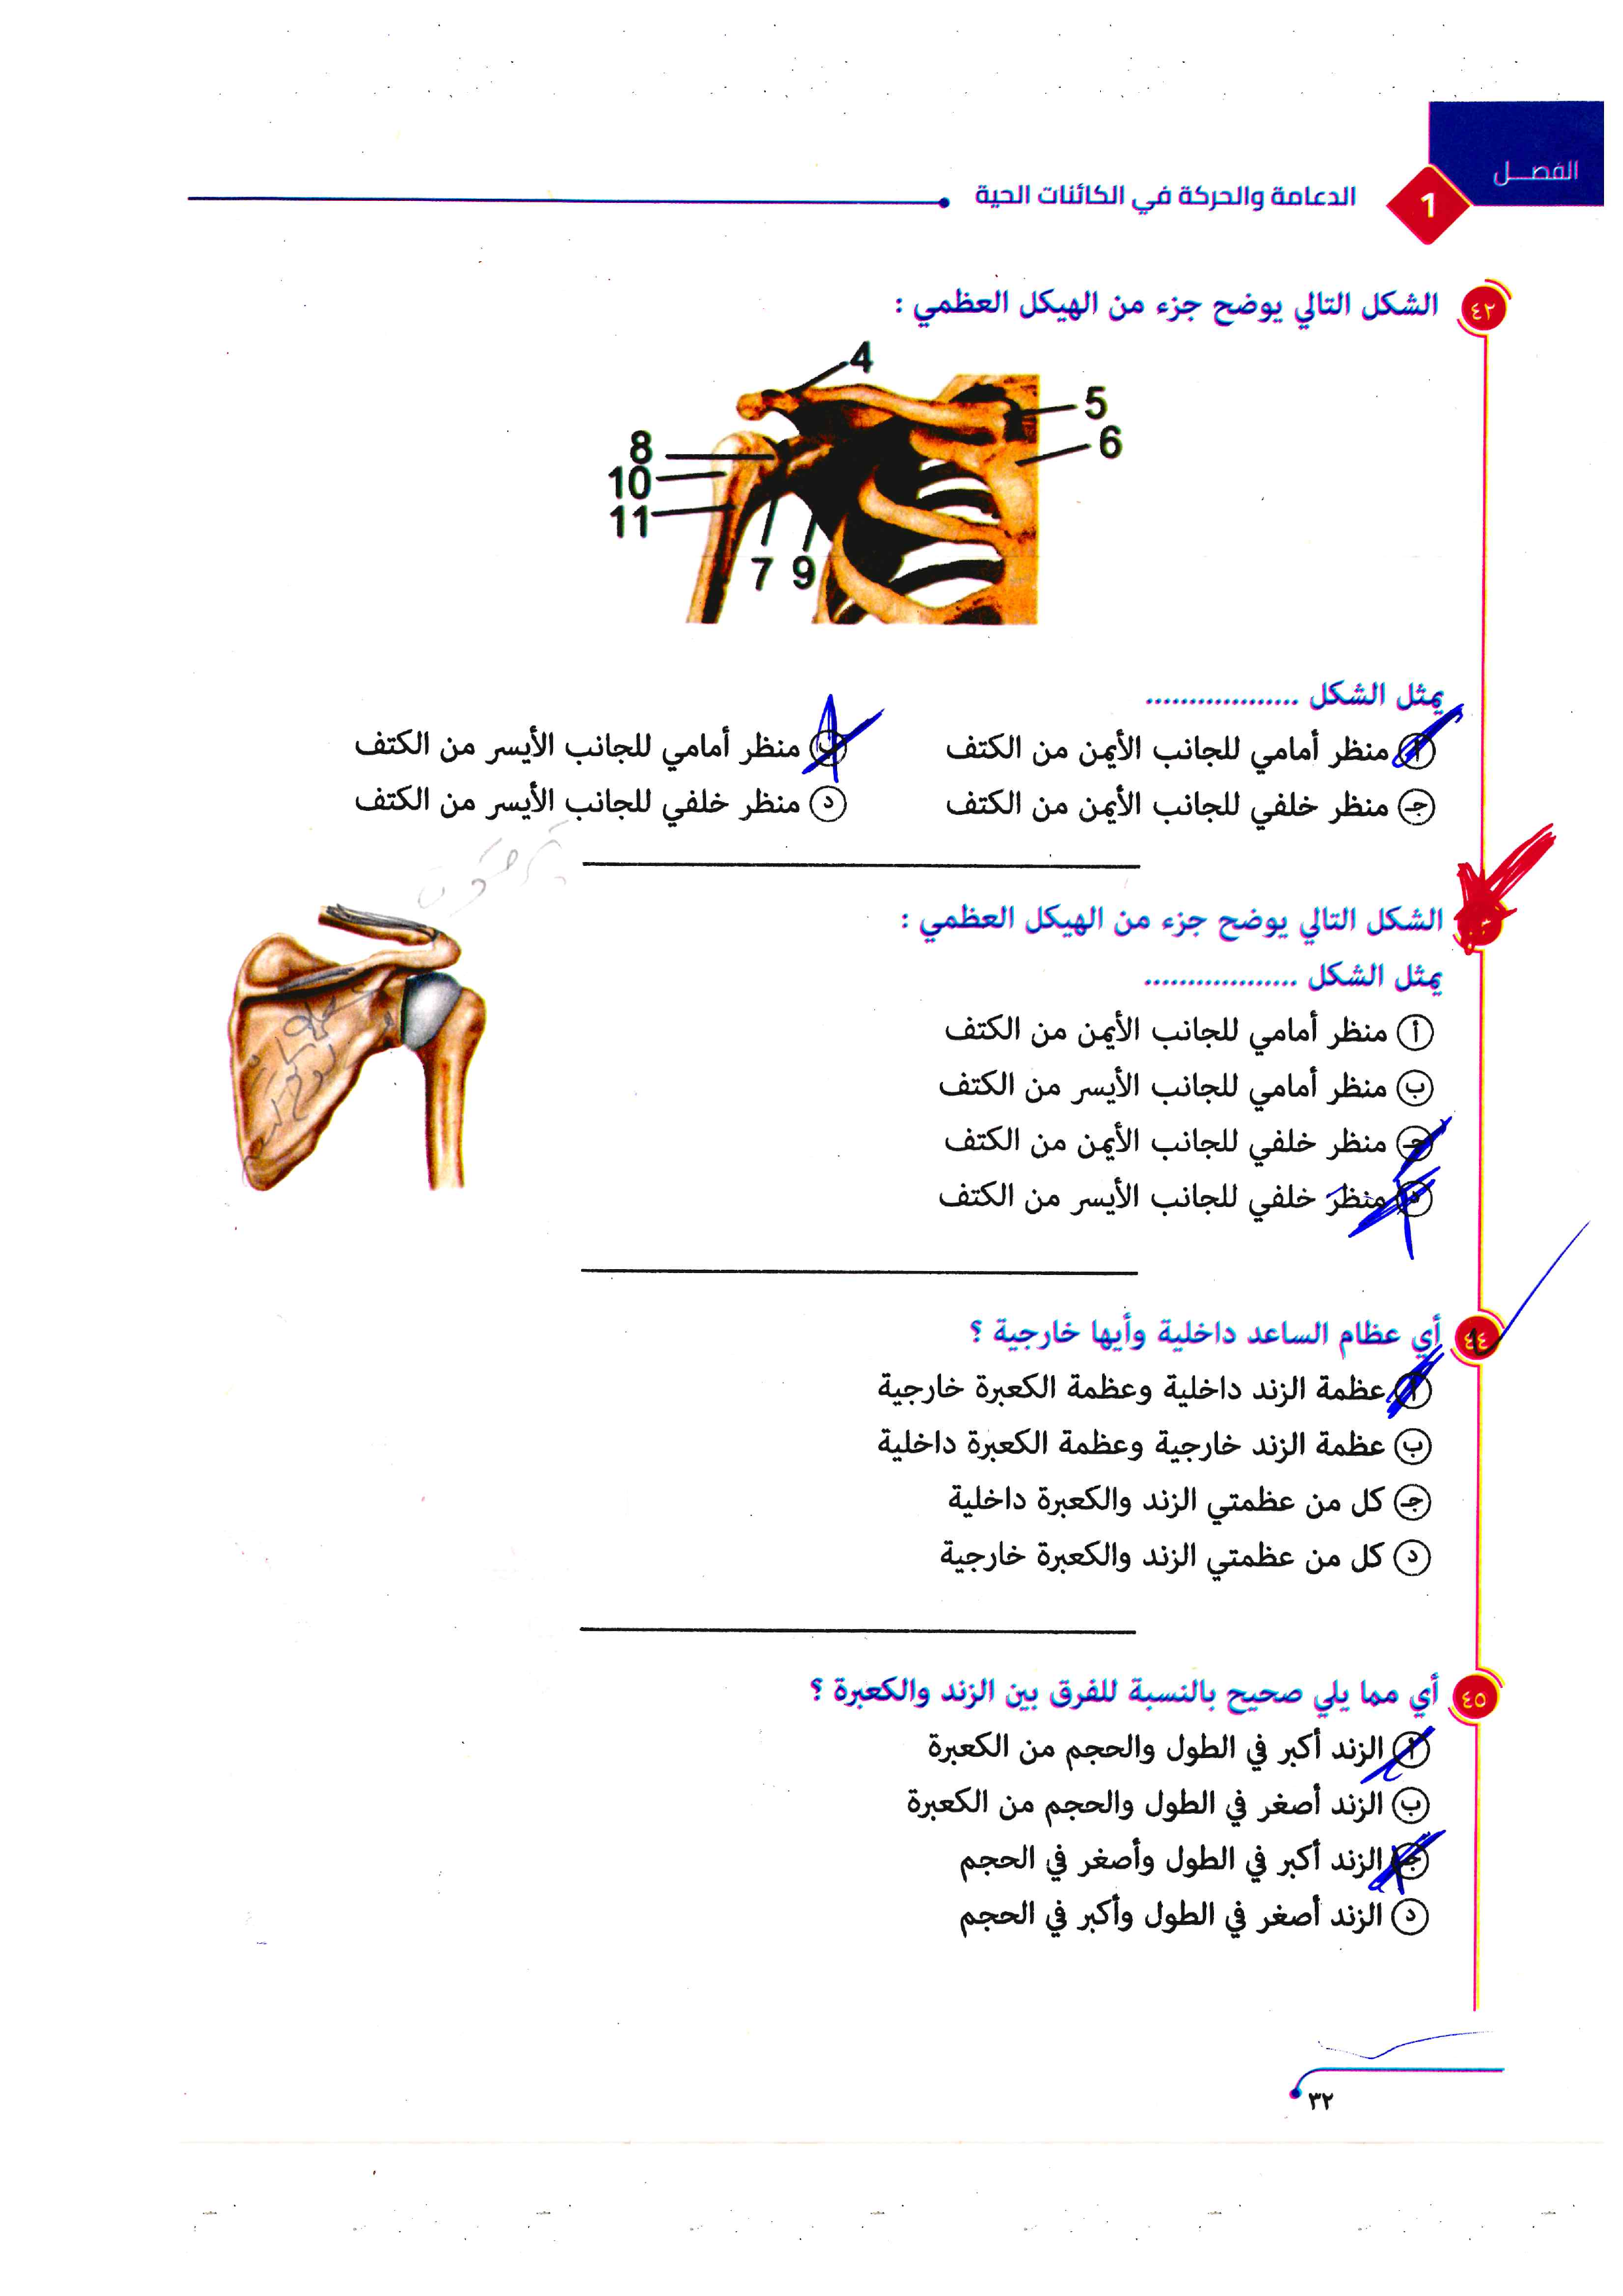 الفصـــل
1
الدعامة والحركة في الكائنات الحية
٤٢ الشكل التالي يوضح جزء من الهيكل العظمي :
4
5
6
8
10
11
7 9
يمثل الشكل ..................
أ منظر أمامي للجانب الأيمن من الكتف
ب منظر أمامي للجانب الأيسر من الكتف
جـ منظر خلفي للجانب الأيمن من الكتف
د منظر خلفي للجانب الأيسر من الكتف
الشكل التالي يوضح جزء من الهيكل العظمي :
يمثل الشكل ..................
أ منظر أمامي للجانب الأيمن من الكتف
ب منظر أمامي للجانب الأيسر من الكتف
جـ منظر خلفي للجانب الأيمن من الكتف
د منظر خلفي للجانب الأيسر من الكتف
٤٤ أي عظام الساعد داخلية وأيها خارجية ؟
أ عظمة الزند داخلية وعظمة الكعبرة خارجية
ب عظمة الزند خارجية وعظمة الكعبرة داخلية
جـ كل من عظمتي الزند والكعبرة داخلية
د كل من عظمتي الزند والكعبرة خارجية
٤٥ أي مما يلي صحيح بالنسبة للفرق بين الزند والكعبرة ؟
أ الزند أكبر في الطول والحجم من الكعبرة
ب الزند أصغر في الطول والحجم من الكعبرة
جـ الزند أكبر في الطول وأصغر في الحجم
د الزند أصغر في الطول وأكبر في الحجم
٣٢